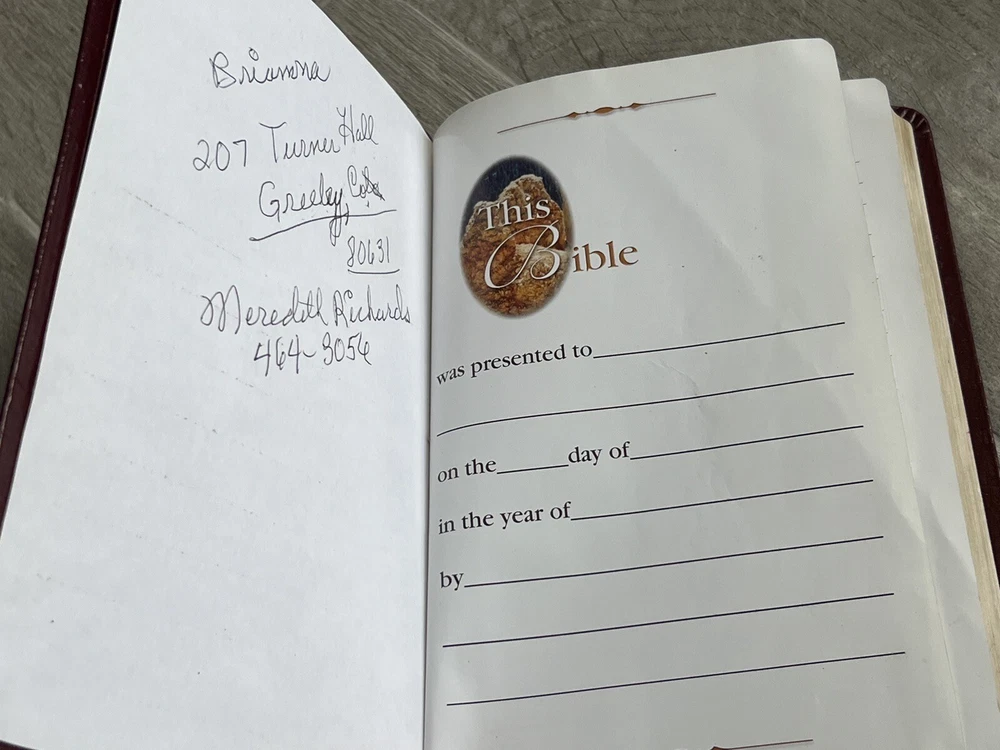 Brianna
207 Turner Hall
Greeley, Co.
80631
Meredith Richards
464-3056
This
Bible
was presented to
on the day of
in the year of
by